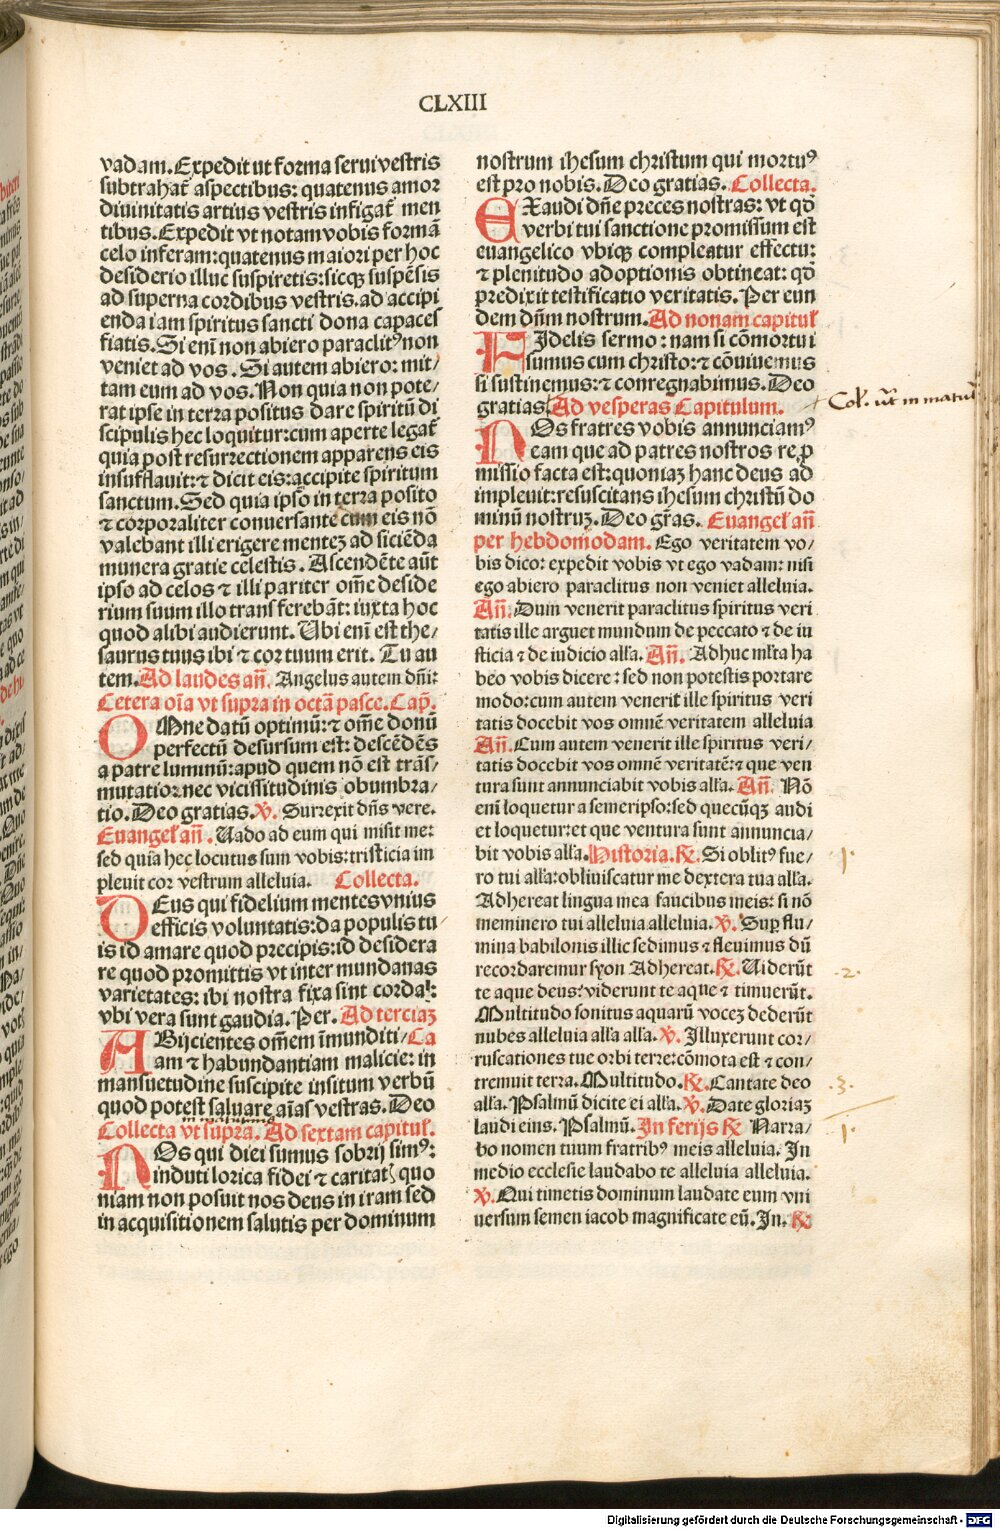 CLXIII
vadam. Expedit ut forma serui vestris
subtrahat᷑ aspectibus: quatenus amor
diuinitatis artius vestris infigat᷑ men
tibus. Expedit vt notam vobis formã
celo inferam: quatenus maiori per hoc
desiderio illuc suspiretis: sicqȝ suspẽsis
ad superna cordibus vestris. ad accipi
enda iam spiritus sancti dona capaces
fiatis. Si enĩ non abiero paraclitꝰ non
veniet ad vos. Si autem abiero: mit/
tam eum ad vos. Non quia non pote/
rat ipse in terra positus dare spiritũ di
scipulis hec loquitur: cum aperte legat᷑
quia post resurrectionem apparens eis
insufflauit: ⁊ dicit eis: accipite spiritum
sanctum. Sed quia ipso in terra posito
⁊ corporaliter conuersante cum eis nõ
valebant illi erigere mentez ad sciẽda
munera gratie celestis. Ascendẽte aũt
ipso ad celos ⁊ illi pariter om̃e deside
rium suum illo transferebãt: iuxta hoc
quod alibi audierunt. Ubi enĩ est the/
saurus tuus ibi ⁊ cor tuum erit. Tu au
tem. Ad laudes añ. Angelus autem dñi:
Cetera oĩa vt supra in octã pasce. Cap̃.
OMne datũ optimũ: ⁊ om̃e donũ
perfectũ desursum est: descẽdẽs
a patre luminũ: apud quem nõ est trãs/
mutatio: nec vicissitudinis obumbra/
tio. Deo gratias. ℣. Surrexit dñs vere.
Euangeł añ. Uado ad eum qui misit me:
sed quia hec locutus sum vobis: tristicia im
pleuit cor vestrum alleluia. Collecta.
DEus qui fidelium mentes vnius
efficis voluntatis: da populis tu/
is id amare quod precipis: id desidera
re quod promittis vt inter mundanas
varietates: ibi nostra fixa sint corda:
vbi vera sunt gaudia. Per. Ad terciaz
ABijcientes om̃em ĩmunditi/ Ca
am ⁊ habundantiam malicie: in
mansuetudine suscipite insitum verbũ
quod potest saluare aĩas vestras. Deo
Collecta vt supra. Ad sextam capituł.
NOs qui diei sumus sobrij simꝰ:
induti lorica fidei ⁊ caritat᷑ quo
niam non posuit nos deus in iram sed
in acquisitionem salutis per dominum
nostrum ihesum christum qui mortuꝰ
est pro nobis. Deo gratias. Collecta.
EXaudi dñe preces nostras: vt qđ
verbi tui sanctione promissum est
euangelico vbiqȝ compleatur effectu:
⁊ plenitudo adoptionis obtineat: qđ
predixit testificatio veritatis. Per eun
dem dñm nostrum. Ad nonam capituł
FIdelis sermo: nam si cõmortui
sumus cum christo: ⁊ cõuiuemus
si sustinemus: ⁊ conregnabimus. Deo
gratias. Ad vesperas Capitulum.
Col. ut in matuť
NOs fratres vobis annunciamꝰ
eam que ad patres nostros rep̱
missio facta est: quoniaz hanc deus ad
impleuit: resuscitans ihesum christũ do
minũ nostruz. Deo gr̃as. Euangeł añ
per hebdomodam. Ego veritatem vo/
bis dico: expedit vobis vt ego vadam: nisi
ego abiero paraclitus non veniet alleluia.
Añ. Dum venerit paraclitus spiritus veri
tatis ille arguet mundum de peccato ⁊ de iu
sticia ⁊ de iudicio alła. Añ. Adhuc młta ha
beo vobis dicere: sed non potestis portare
modo: cum autem venerit ille spiritus veri
tatis docebit vos omnẽ veritatem alleluia
Añ. Cum autem venerit ille spiritus veri/
tatis docebit vos omnẽ veritatẽ: ⁊ que ven
tura sunt annunciabit vobis alła. Añ. Nõ
enĩ loquetur a semeripso: sed quecũqȝ audi
et loquetur: et que ventura sunt annuncia/
bit vobis alła. Historia. ℟. Si oblitꝰ fue/
1.
ro tui alła: obliuiscatur me dextera tua alła.
Adhereat lingua mea faucibus meis: si nõ
meminero tui alleluia alleluia. ℣. Sup̱ flu/
mina babilonis illic sedimus ⁊ fleuimus dũ
recordaremur syon Adhereat. ℟. Uiderũt
2.
te aque deus: viderunt te aque ⁊ timuerũt.
Multitudo sonitus aquarũ vocez dederũt
nubes alleluia alła alła. ℣. Illuxerunt cor/
ruscationes tue orbi terre: cõmota est ⁊ con/
tremuit terra. Multitudo. ℟. Cantate deo
3.
alła. Psalmũ dicite ei alła. ℣. Date gloriaz
laudi eius. Psalmũ. In ferijs ℟ Narra/
1.
bo nomen tuum fratribꝰ meis alleluia. In
medio ecclesie laudabo te alleluia alleluia.
℣. Qui timetis dominum laudate eum vni
uersum semen iacob magnificate eũ. In. ℟
Digitalisierung gefördert durch die Deutsche Forschungsgemeinschaft - DFG